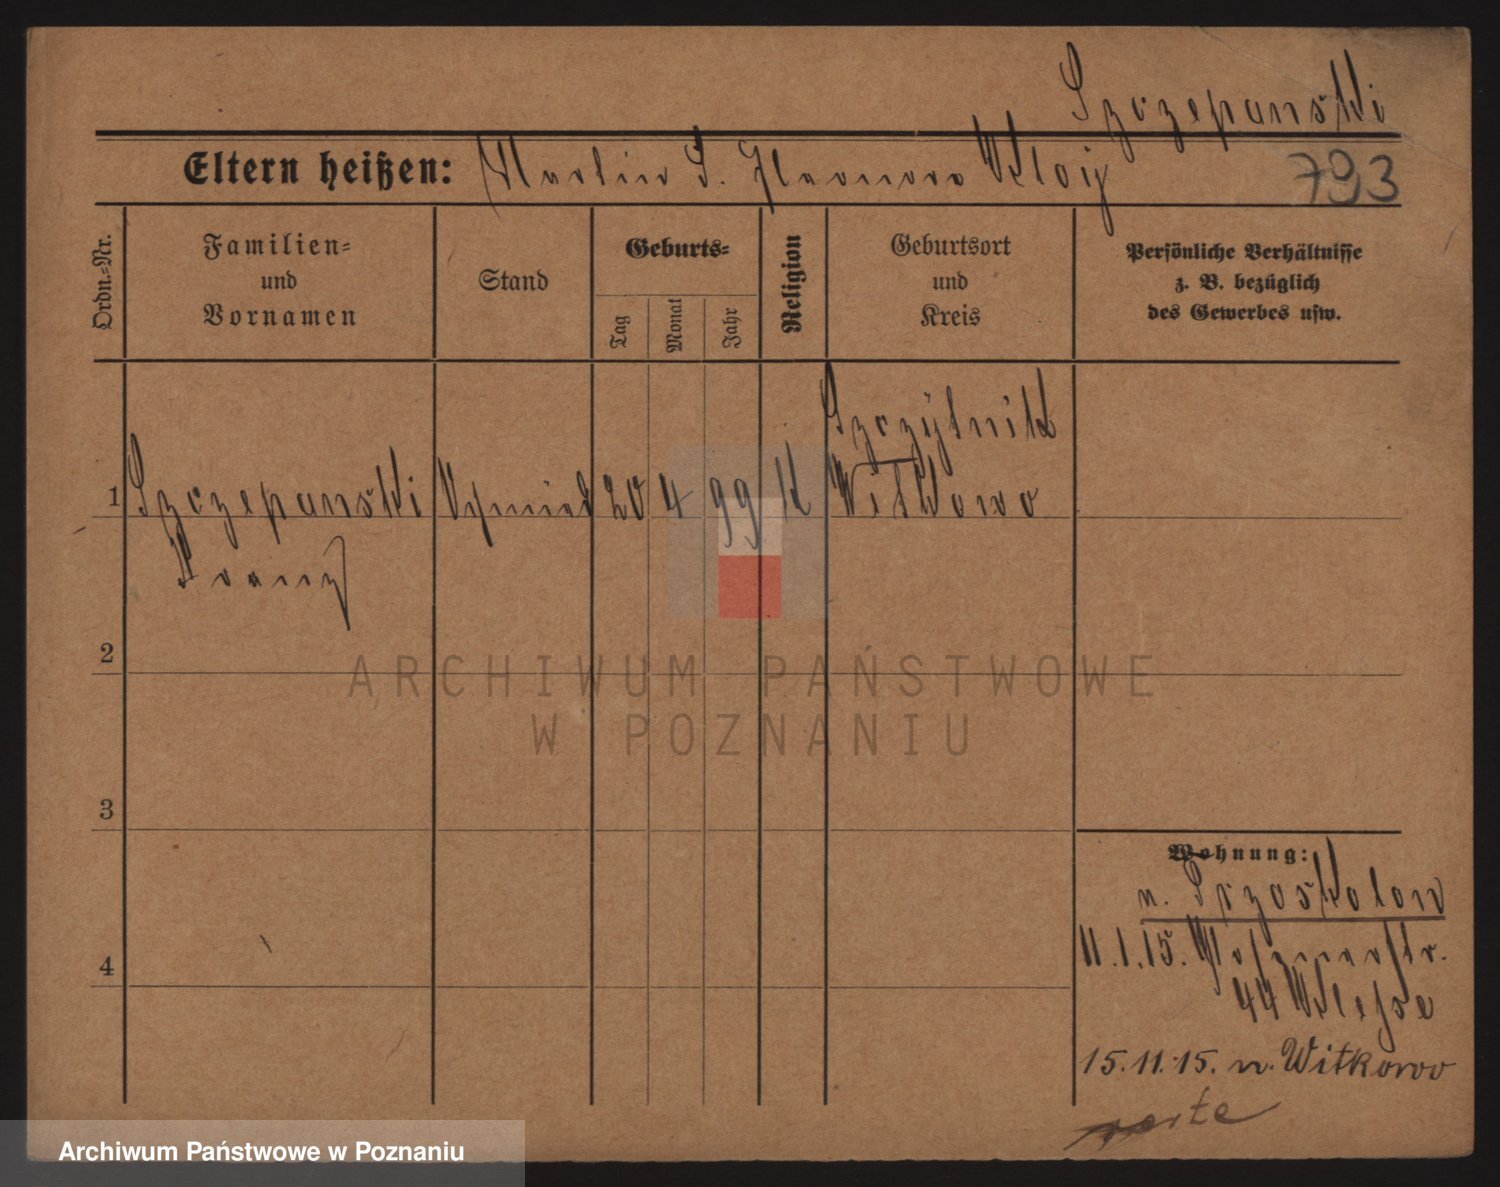 Szczepanski
Eltern heißen: Martin S. Eleonora
793
Ordn.-Nr.
Familien-
und
Vornamen
Stand
Geburts-
Tag
Monat
Jahr
Religion
Geburtsort
und
Kreis
Persönliche Verhältnisse
z. B. bezüglich
des Gewerbes usw.
1
Szczepanski
Franz
Schmied
20
4
99
K
Szczytnik
Witkowo
2
3
4
Wohnung:
n.
11.1.15.
44
15.11.15. n. Witkowo
ARCHIWUM PAŃSTWOWE
W POZNANIU
Archiwum Państwowe w Poznaniu